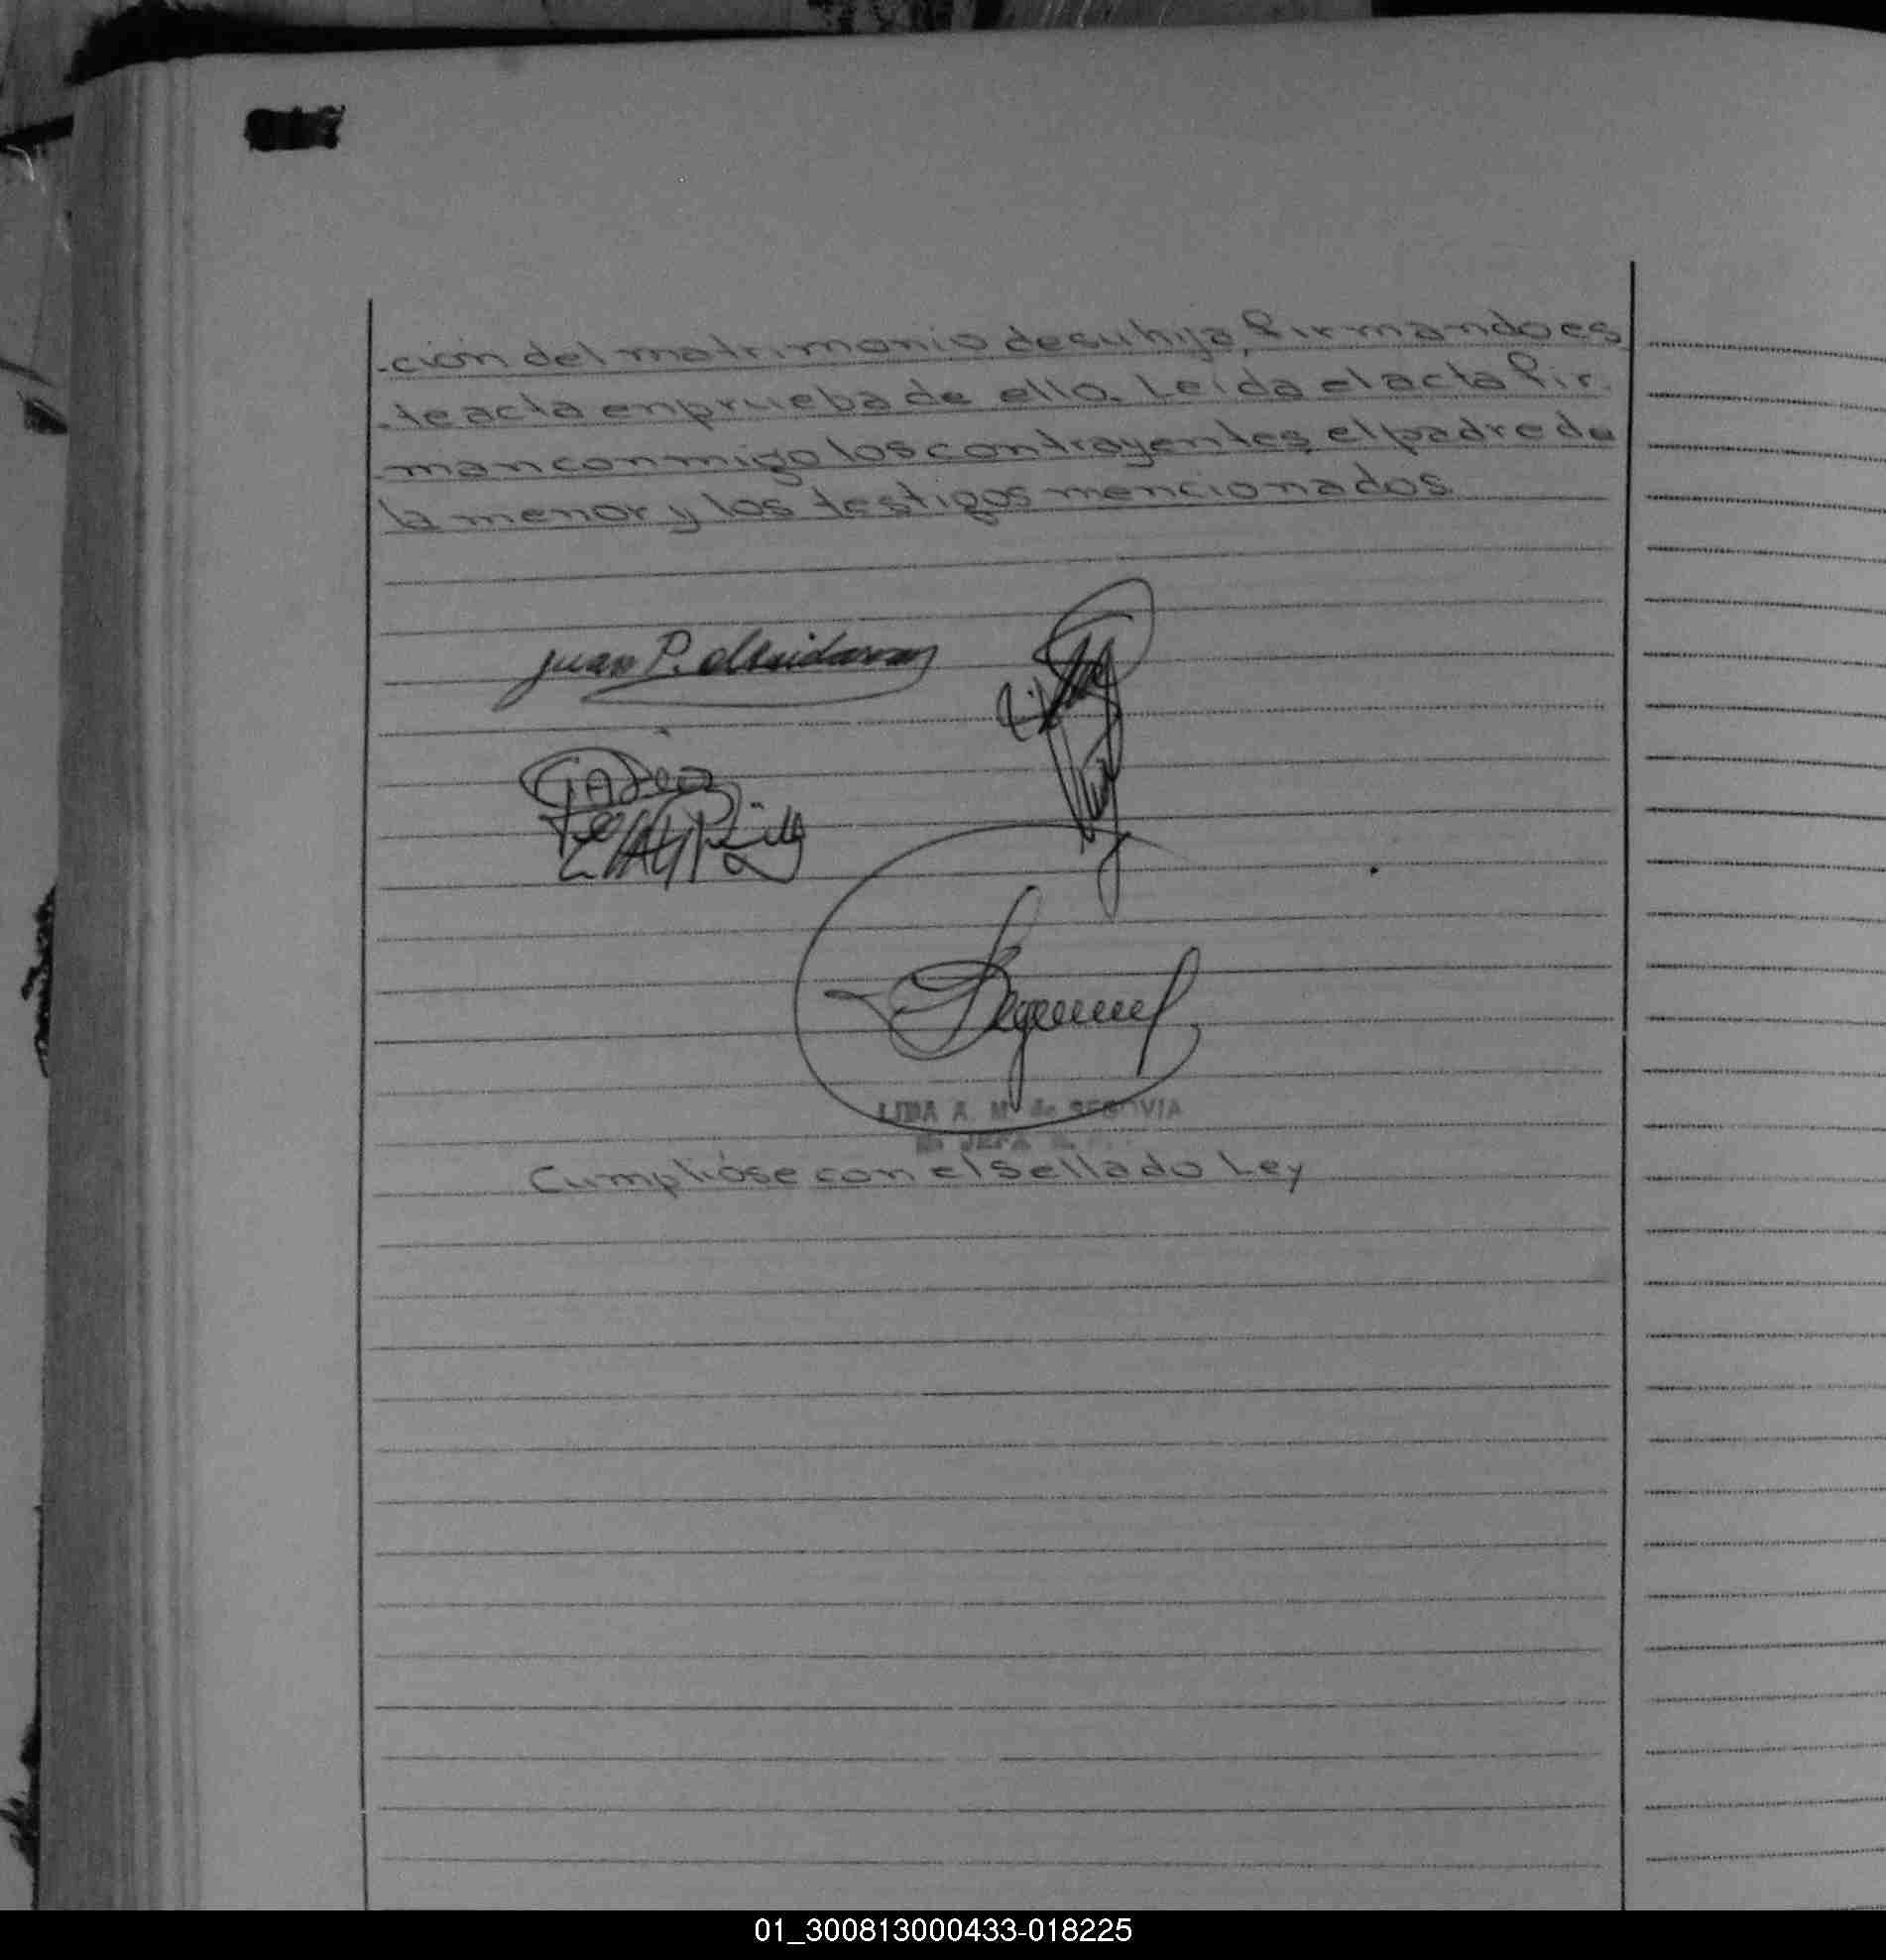 -ción del matrimonio de su hija, firmando es
-te acta en prueba de ello. Leída el acta fir.
-man conmigo los contrayentes, el padre de
la menor y los testigos mencionados
Juan P.
LIDIA A. M de SEGOVIA
JEFA
Cumplióse con el sellado Ley
01_300813000433-018225